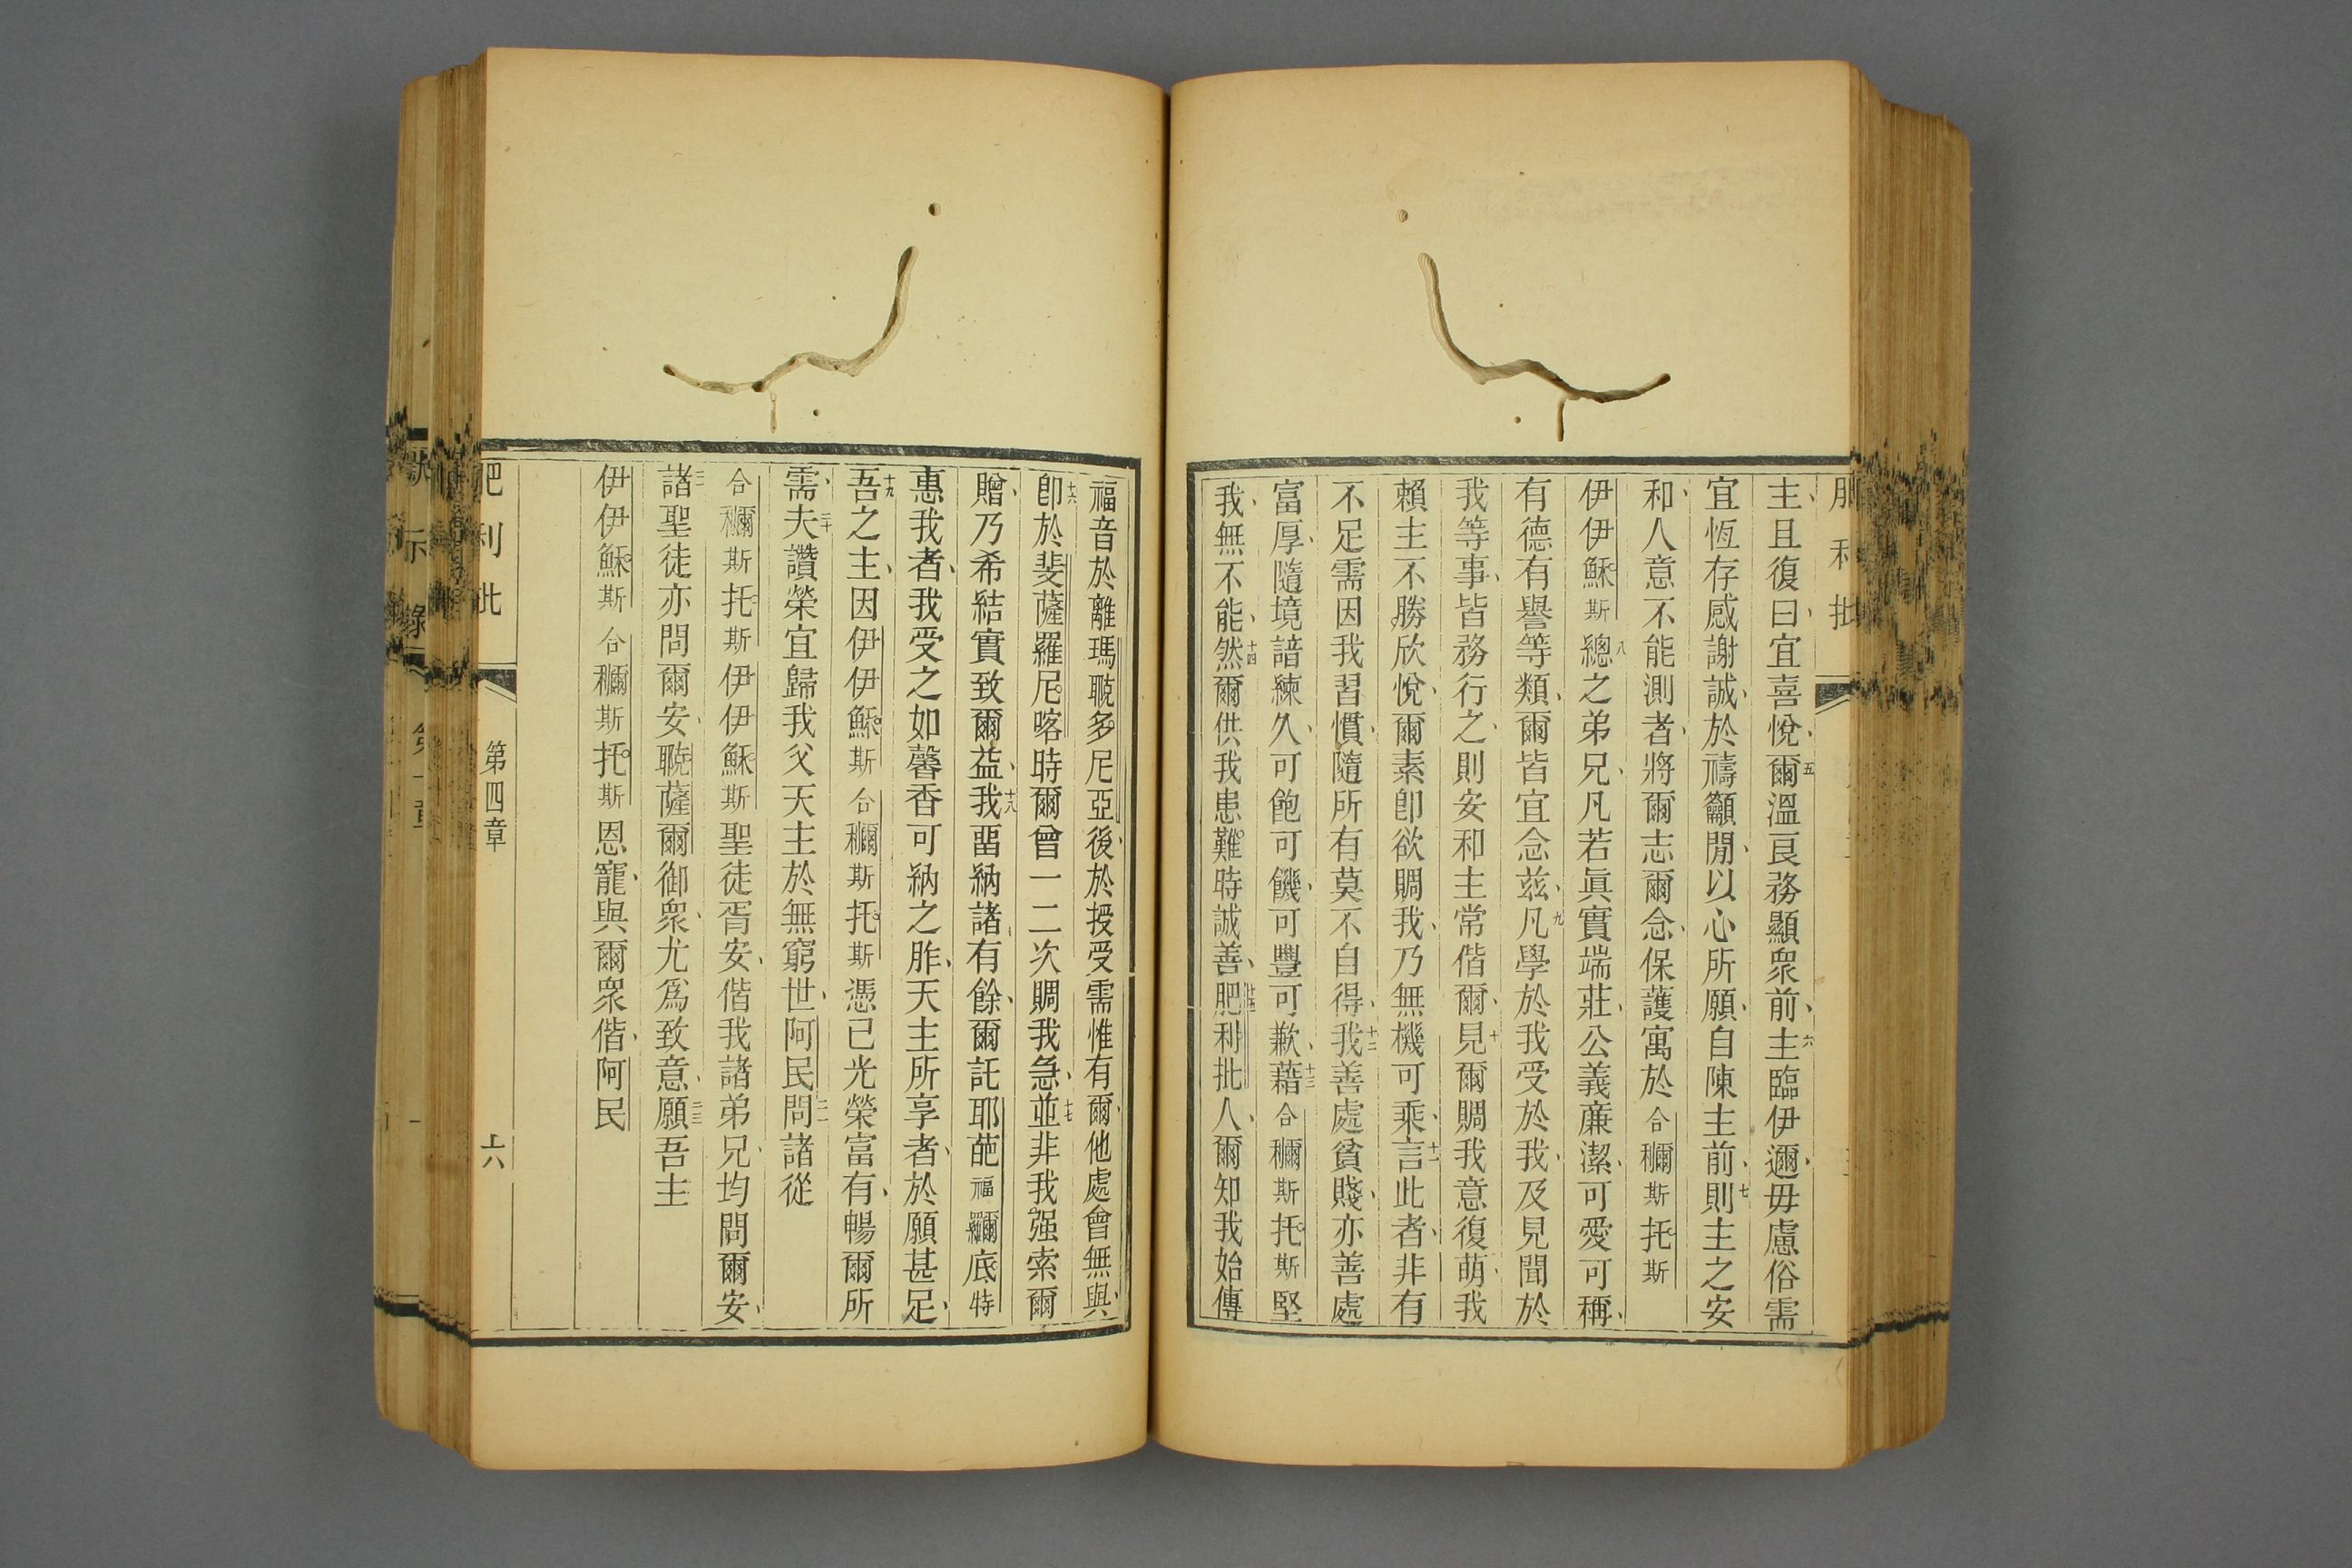 肥利批
主、且復曰、宜喜悅、五爾溫良務顯衆前、六主臨伊邇、毋慮俗需
宜恆存感謝誠、於禱籲閒、以心所願、自陳主前、七則主之安
和、人意不能測者、將爾志爾念、保護寓於合穪斯托斯
伊伊穌斯八總之弟兄、凡若眞實端莊、公義廉潔、可愛可稱、
有德有譽等類、爾皆宜念兹、九凡學於我受於我、及見聞於
我等事、皆務行之、則安和主常偕爾、十見爾賙我意復萌、我
賴主不勝欣悅、爾素卽欲賙我、乃無機可乘、十一言此者、非有
不足需、因我習慣、隨所有莫不自得、十二我善處貧賤、亦善處
富厚、隨境諳練久、可飽可饑、可豐可歉、十三藉合穪斯托斯堅
我、我無不能、十四然爾供我患難時誠善、十五肥利批人、爾知我始傳
福音於離瑪聭多尼亞後、於授受需惟有爾、他處會無與、
十六卽於斐薩羅尼喀時、爾曾一二次賙我急、十七並非我强索爾
贈、乃希結實致爾益、十八我畱納諸有餘、爾託耶葩福羅爾底特
惠我者、我受之如馨香可納之胙、天主所享者、於願甚足、
十九吾之主、因伊伊穌斯合穪斯托斯憑己光榮富有、暢爾所
需、二十夫讚榮宜歸我父天主於無窮世、阿民、二一問諸從
合穪斯托斯伊伊穌斯聖徒胥安、偕我諸弟兄、均問爾安、
二二諸聖徒亦問爾安、聭薩爾御衆、尤爲致意、二三願吾主
伊伊穌斯合穪斯托斯恩寵、與爾衆偕、阿民
肥利批 第四章 六